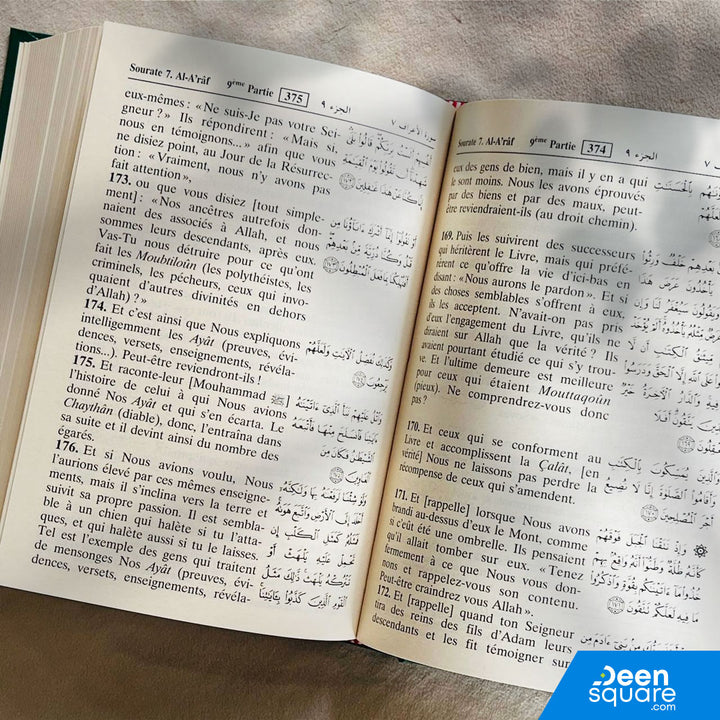 Sourate 7. Al-A'râf 9ème Partie 374 الجزء ٩ ٧
eux des gens de bien, mais il y en a qui
le sont moins. Nous les avons éprouvés
par des biens et par des maux, peut-
être reviendraient-ils (au droit chemin).
169. Puis les suivirent des successeurs
qui héritèrent le Livre, mais qui préfé-
rèrent ce qu'offre la vie d'ici-bas en
disant : « Nous aurons le pardon ». Et si
des choses semblables s'offrent à eux,
ils les acceptent. N'avait-on pas pris
d'eux l'engagement du Livre, qu'ils ne
diraient sur Allah que la vérité ? Ils
avaient pourtant étudié ce qui s'y trou-
ve. Et l'ultime demeure est meilleure
pour ceux qui étaient Mouttaqoûn
(pieux). Ne comprendrez-vous donc
pas ?
170. Et ceux qui se conforment au
Livre et accomplissent la Çalât, [en
vérité] Nous ne laissons pas perdre la
récompense de ceux qui s'amendent.
171. Et [rappelle] lorsque Nous avons
brandi au-dessus d'eux le Mont, comme
si c'eût été une ombrelle. Ils pensaient
qu'il allait tomber sur eux. « Tenez
fermement à ce que Nous vous don-
nons et rappelez-vous son contenu.
Peut-être craindrez vous Allah ».
172. Et [rappelle] quand ton Seigneur
tira des reins des fils d'Adam leurs
descendants et les fit témoigner sur
وَالَّذِينَ يُمَسِّكُونَ بِالْكِتَابِ
وَأَقَامُوا الصَّلَاةَ إِنَّا لَا نُضِيعُ
أَجْرَ الْمُصْلِحِينَ
وَإِذْ نَتَقْنَا الْجَبَلَ فَوْقَهُمْ
كَأَنَّهُ ظُلَّةٌ وَظَنُّوا أَنَّهُ وَاقِعٌ بِهِمْ
خُذُوا مَا آتَيْنَاكُم بِقُوَّةٍ وَاذْكُرُوا
مَا فِيهِ لَعَلَّكُمْ تَتَّقُونَ
Sourate 7. Al-A'râf 9ème Partie 375 الجزء ٩ سورة الأعراف ٧
eux-mêmes : « Ne suis-Je pas votre Sei-
gneur ? » Ils répondirent : « Mais si,
nous en témoignons... » afin que vous
ne disiez point, au Jour de la Résurrec-
tion : « Vraiment, nous n'y avons pas
fait attention »,
173. ou que vous disiez [tout simple-
ment] : « Nos ancêtres autrefois don-
naient des associés à Allah, et nous
sommes leurs descendants, après eux.
Vas-Tu nous détruire pour ce qu'ont
fait les Moubtiloûn (les polythéistes, les
criminels, les pécheurs, ceux qui invo-
quaient d'autres divinités en dehors
d'Allah) ? »
174. Et c'est ainsi que Nous expliquons
intelligemment les Ayât (preuves, évi-
dences, versets, enseignements, révéla-
tions...). Peut-être reviendront-ils !
175. Et raconte-leur [Mouhammad ﷺ]
l'histoire de celui à qui Nous avions
donné Nos Ayât et qui s'en écarta. Le
Chaythân (diable), donc, l'entraîna dans
sa suite et il devint ainsi du nombre des
égarés.
176. Et si Nous avions voulu, Nous
l'aurions élevé par ces mêmes enseigne-
ments, mais il s'inclina vers la terre et
suivit sa propre passion. Il est sembla-
ble à un chien qui halète si tu l'atta-
ques, et qui halète aussi si tu le laisses.
Tel est l'exemple des gens qui traitent
de mensonges Nos Ayât (preuves, évi-
dences, versets, enseignements, révéla-
أَنفُسِهِمْ أَلَسْتُ بِرَبِّكُمْ قَالُوا بَلَىٰ
شَهِدْنَا أَن تَقُولُوا يَوْمَ الْقِيَامَةِ
إِنَّا كُنَّا عَنْ هَٰذَا غَافِلِينَ
أَوْ تَقُولُوا إِنَّمَا أَشْرَكَ آبَاؤُنَا مِن
قَبْلُ وَكُنَّا ذُرِّيَّةً مِّن بَعْدِهِمْ
أَفَتُهْلِكُنَا بِمَا فَعَلَ الْمُبْطِلُونَ
وَكَذَٰلِكَ نُفَصِّلُ الْآيَاتِ وَلَعَلَّهُمْ
يَرْجِعُونَ
وَاتْلُ عَلَيْهِمْ نَبَأَ الَّذِي آتَيْنَاهُ
آيَاتِنَا فَانسَلَخَ مِنْهَا فَأَتْبَعَهُ
الشَّيْطَانُ فَكَانَ مِنَ
وَلَوْ شِئْنَا لَرَفَعْنَاهُ بِهَا وَلَٰكِنَّهُ
أَخْلَدَ إِلَى الْأَرْضِ وَاتَّبَعَ هَوَاهُ
فَمَثَلُهُ كَمَثَلِ الْكَلْبِ إِن
تَحْمِلْ عَلَيْهِ يَلْهَثْ أَوْ
تَتْرُكْهُ يَلْهَث ذَّٰلِكَ مَثَلُ
الْقَوْمِ الَّذِينَ كَذَّبُوا بِآيَاتِنَا
Deen
square
.com